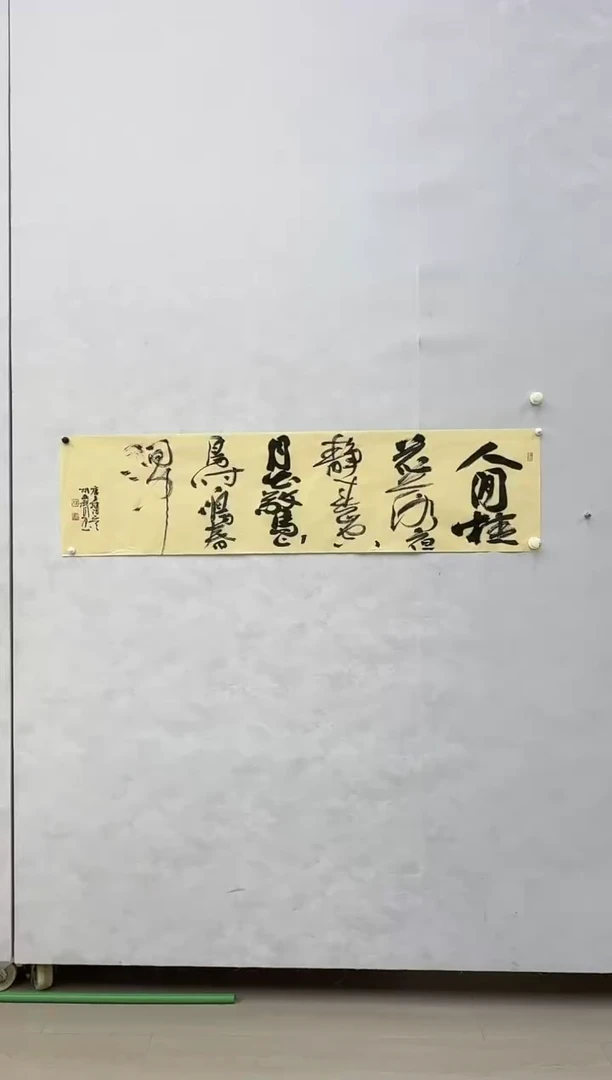 人閒桂
花落夜
静春山空
月出驚山
鳥时鳴春
澗中